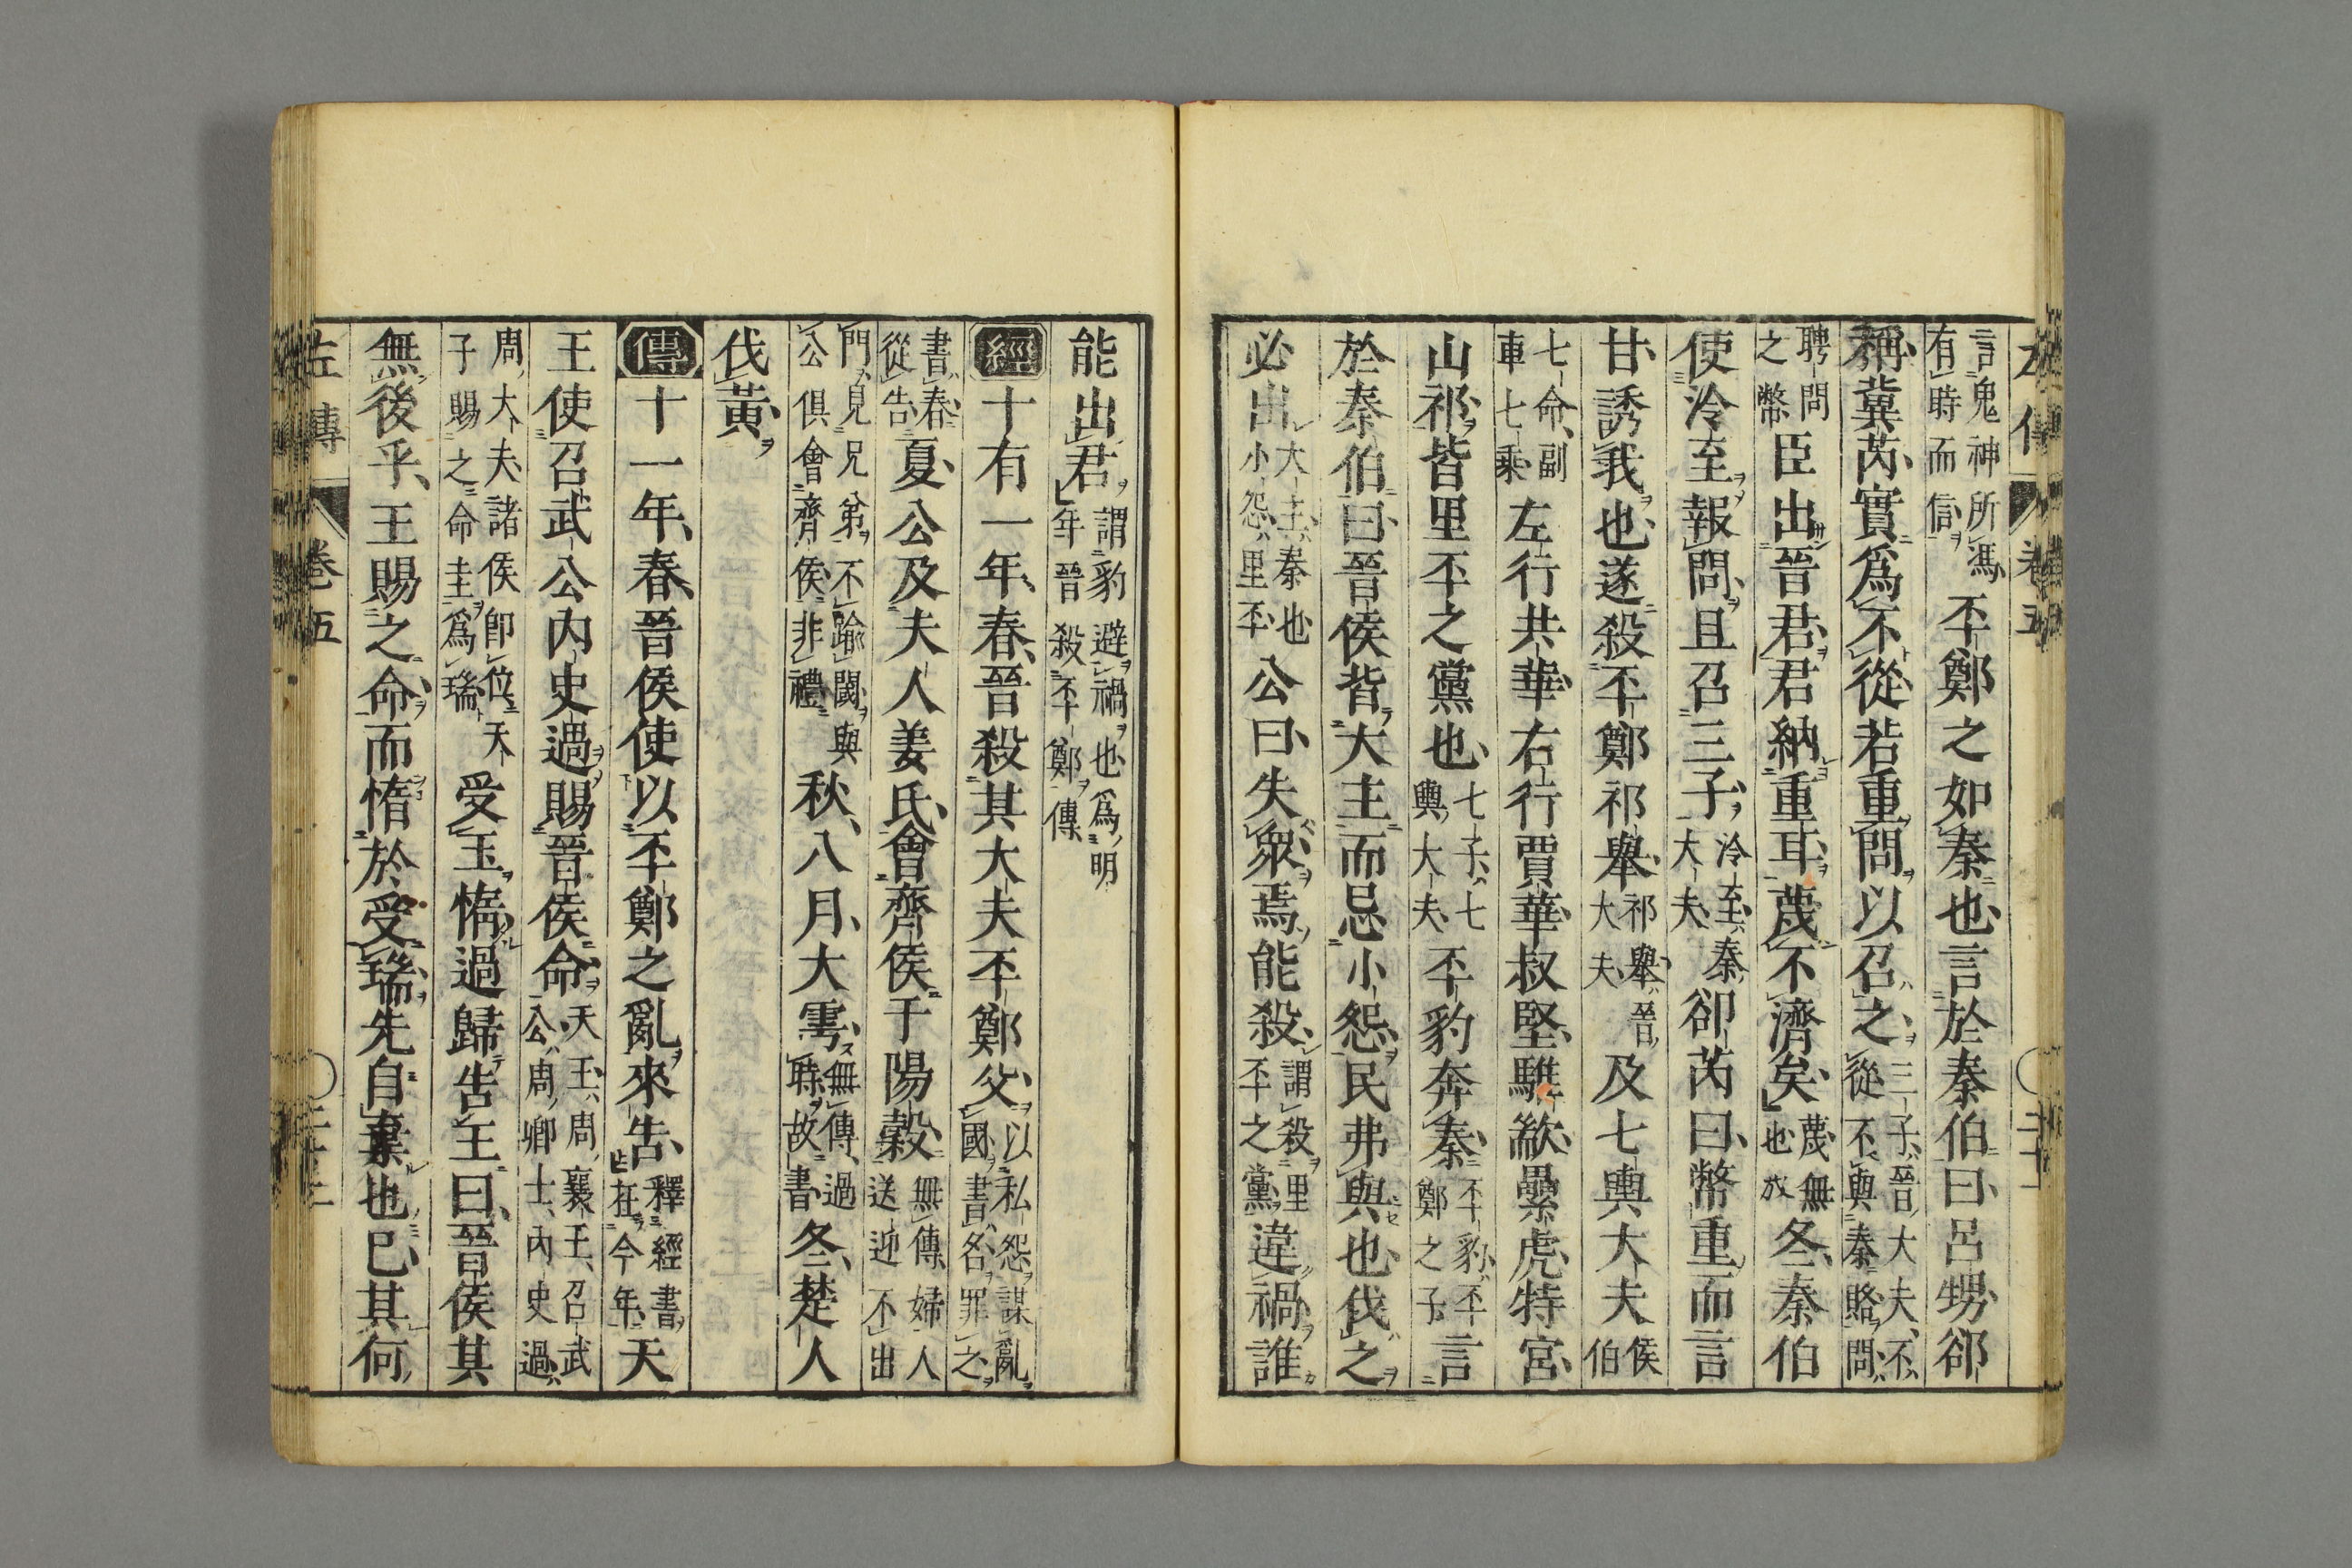 左傳 卷五
言鬼神所馮有時而信丕鄭之如秦也言於秦伯曰呂甥郤
稱冀芮實爲不從若重問以召之三子晉大夫不從不與秦賂問
聘問之幣臣出晉君君納重耳蔑不濟矣蔑無也冬秦伯
使泠至報問且召三子泠至秦大夫郤芮曰幣重而言
甘誘我也遂殺丕鄭祁舉祁舉晉大夫及七輿大夫侯伯
七命副車七乘左行共華右行賈華叔堅騅歂纍虎特宮
山祁皆里丕之黨也七子七輿大夫丕豹奔秦丕豹丕鄭之子言
於秦伯曰晉侯背大主而忌小怨民弗與也伐之
必出大主秦也小怨里丕公曰失衆焉能殺謂殺里丕之黨違禍誰
能出君謂豹避禍也爲明年晉殺丕鄭傳
經十有一年春晉殺其大夫丕鄭父以私怨謀亂國書名罪之
書春從告夏公及夫人姜氏會齊侯于陽穀無傳婦人送迎不出
門見兄弟不踰閾與公俱會齊侯非禮秋八月大雩無傳過時故書冬楚人
伐黃
傳十一年春晉侯使以丕鄭之亂來告釋經書在今年天
王使召武公內史過賜晉侯命天王周襄王召武公周卿士內史過
周大夫諸侯即位天子賜之命圭爲瑞受玉惰過歸告王曰晉侯其
無後乎王賜之命而惰於受瑞先自棄也已其何
左傳 卷五